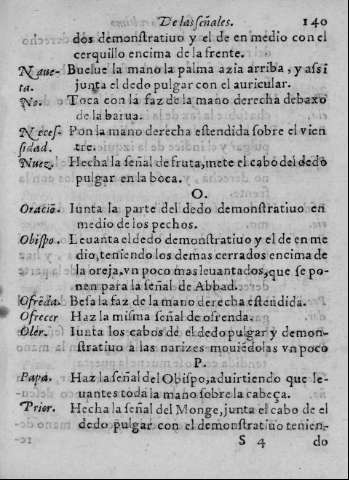 De las señales. 140
dos demonstratiuo y el de en medio con el
cerquillo encima de la frente.
Naue- Buelue la mano la palma azia arriba, y assi
ta. junta el dedo pulgar con el auricular.
No. Toca con la faz de la mano derecha debaxo
de la barua.
Neces- Pon la mano derecha estendida sobre el vien
sidad. tre.
Nuez. Hecha la señal de fruta, mete el cabo del dedo
pulgar en la boca.
O.
Oraciõ. Iunta la parte del dedo demonstratiuo en
medio de los pechos.
Obispo. Leuanta el dedo demonstratiuo y el de en me
dio, teniendo los demas cerrados encima de
la oreja, vn poco mas leuantados, que se po-
nen para la señal de Abbad.
Ofrẽda. Besa la faz de la mano derecha estendida.
Ofrecer Haz la misma señal de ofrenda.
Oler. Iunta los cabos de el dedo pulgar y demon-
stratiuo a las narizes mouiẽdolas vn poco
P.
Papa. Haz la señal del Obispo, aduirtiendo que le-
uantes toda la mano sobre la cabeça.
Prior. Hecha la señal del Monge, junta el cabo de el
dedo pulgar con el demonstratiuo tenien-
S 4 do